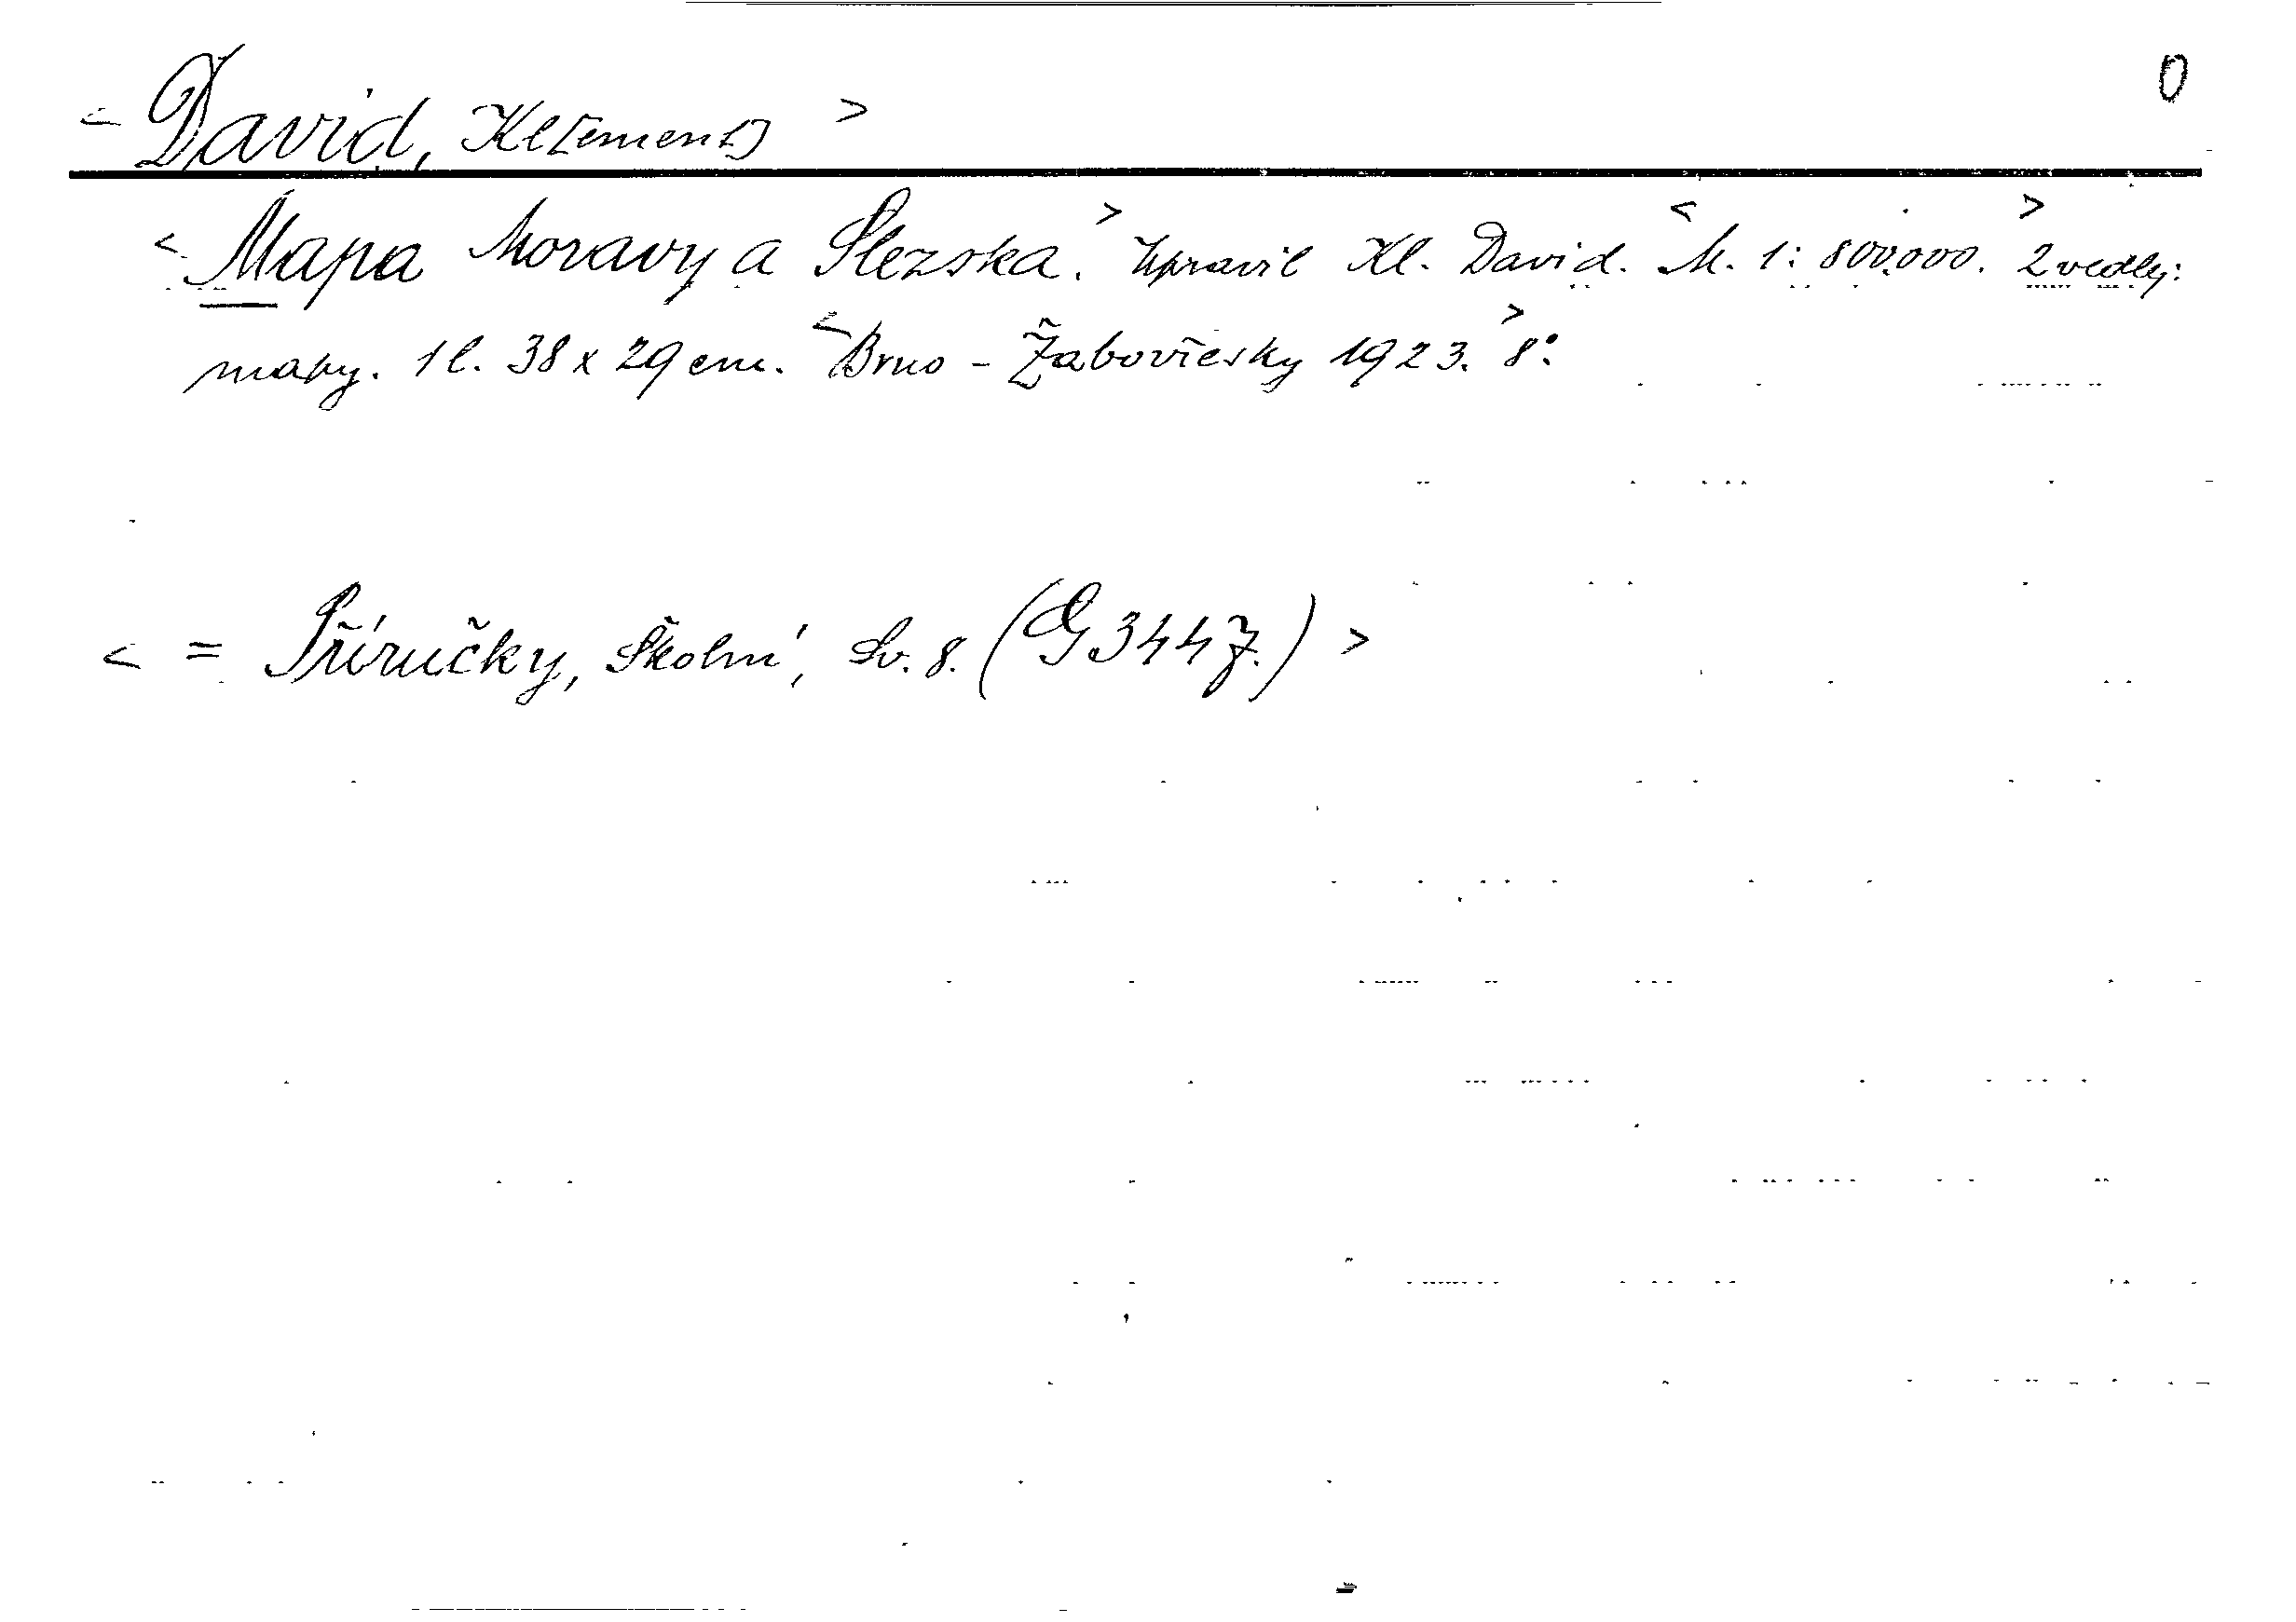 0
< David, Kl[ement] >
< Mapa Moravy a Slezska. > Upravil Kl. David. < M. 1:800.000. > 2 vedlej:
mapy. 1 l. 38 x 29 cm. < Brno - Žabovřesky 1923. > 8°.
< = Příručky, Školní, Sv. 8. (G 3447.) >